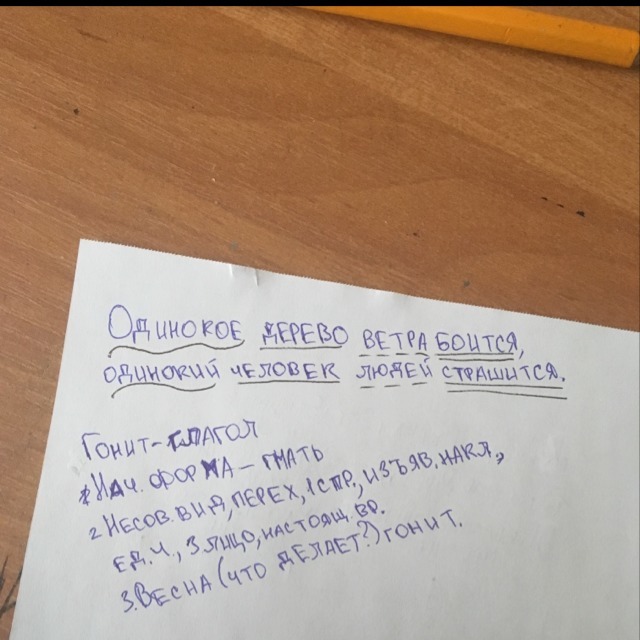 Одинокое дерево ветра боится,
одинокий человек людей страшится.
Гонит-глагол
1 Нач. форма – гнать
2 Несов. вид, перех, 1 спр., изъяв. накл,
ед. ч., 3 лицо, настоящ. вр.
3. Весна (что делает?) гонит.